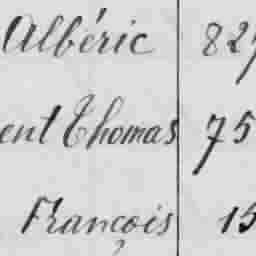 Albéric 827
ent Thomas 75
François 15